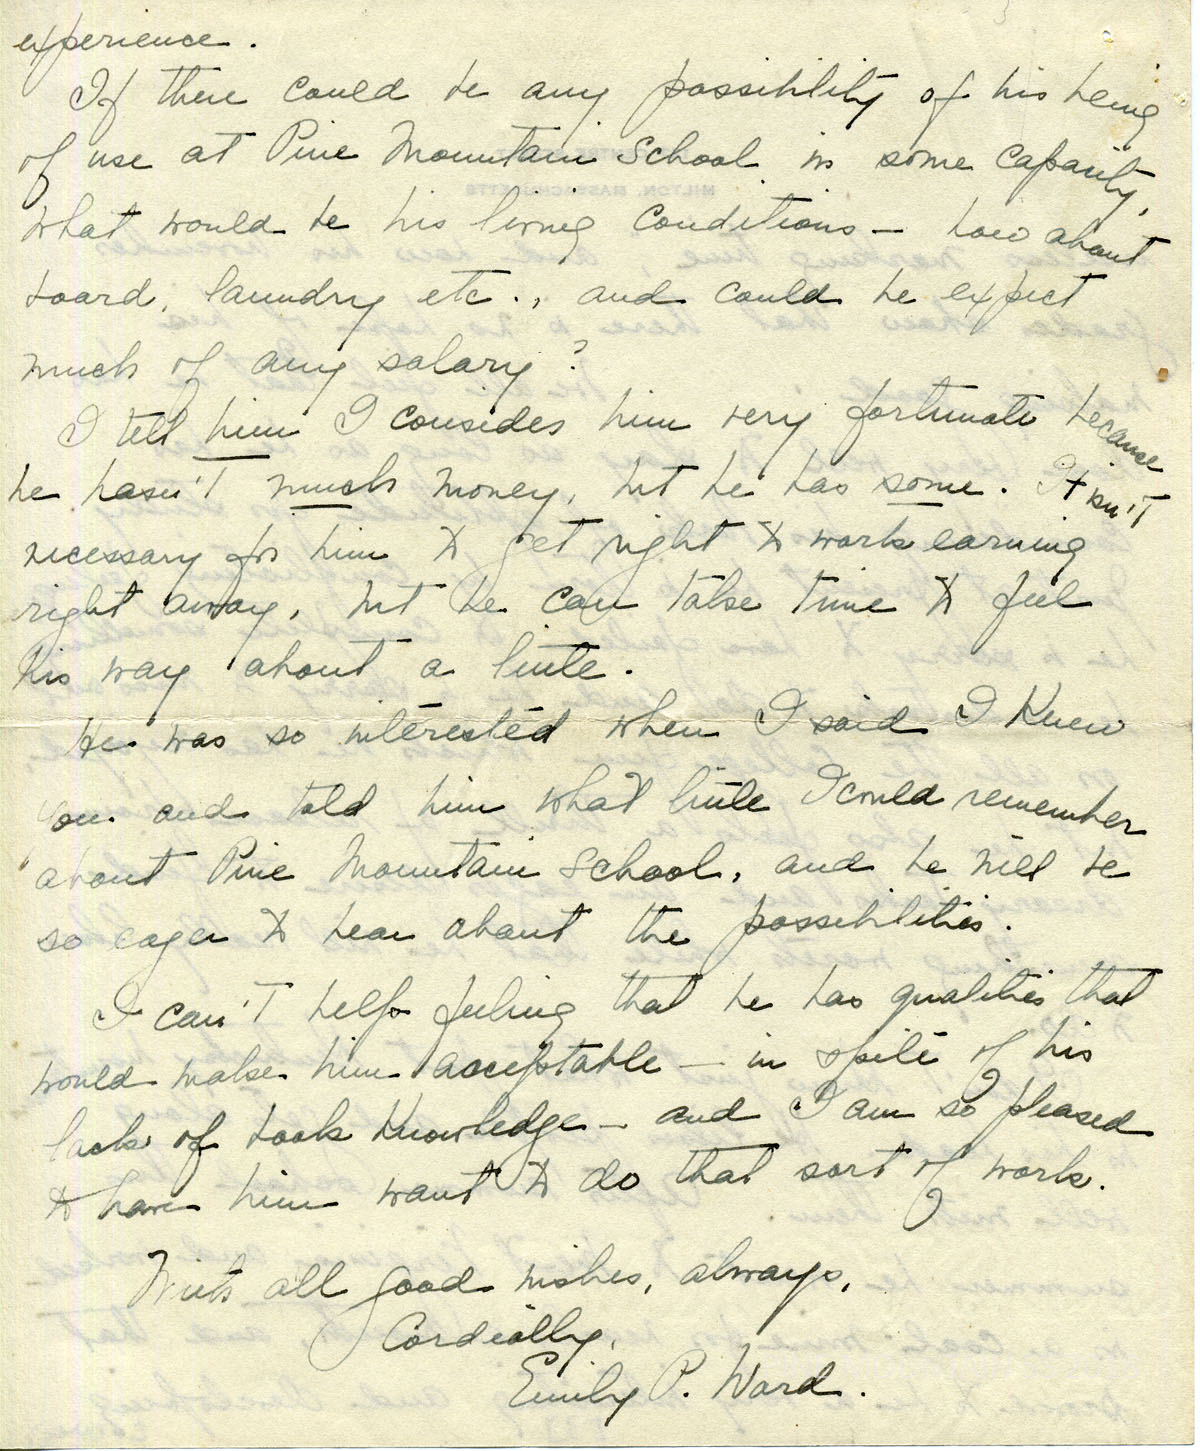 experience.
If there could be any possibility of his being
of use at Pine Mountain School in some capacity,
what would be his living conditions – how about
board, laundry etc., and could he expect
much of any salary?
I tell him I consider him very fortunate because
he hasn't much money, but he has some. It isn't
necessary for him to get right to work earning
right away, but he can take time to feel
his way about a little.
He was so interested when I said I knew
you and told him what little I could remember
about Pine Mountain School, and he will be
so eager to hear about the possibilities.
I can't help feeling that he has qualities that
would make him acceptable – in spite of his
lack of book knowledge – and I am so pleased
to have him want to do that sort of work.
With all good wishes, always,
Cordially,
Emily P. Ward.